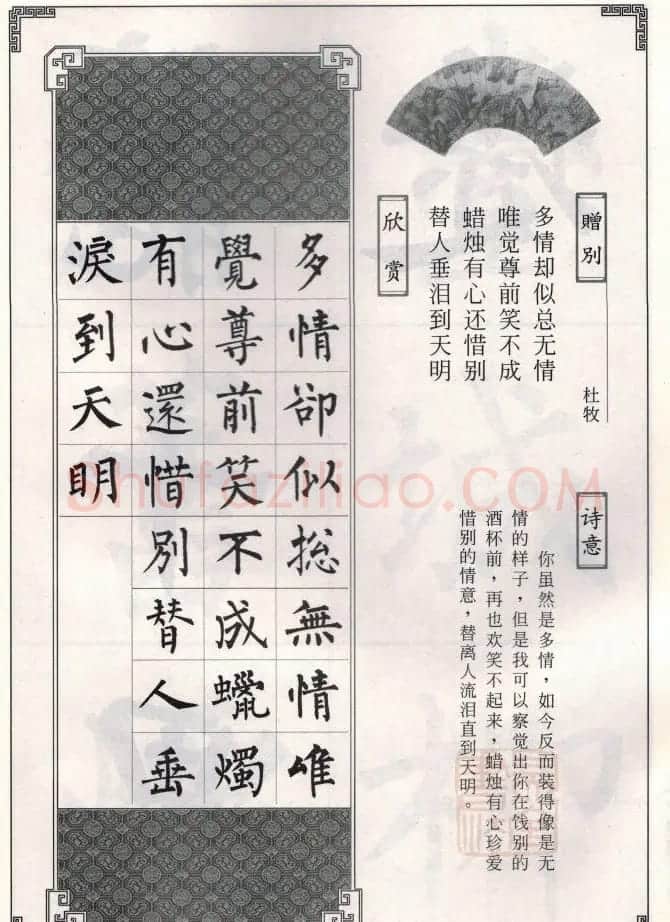 赠别
多情却似总无情
唯觉尊前笑不成
蜡烛有心还惜别
替人垂泪到天明
杜牧
诗意
你虽然是多情，如今反而装得像是无
情的样子，但是我可以察觉出你在饯别的
酒杯前，再也欢笑不起来，蜡烛有心珍爱
惜别的情意，替离人流泪直到天明。
欣赏
多情卻似揔無情唯
覺尊前笑不成蠟燭
有心還惜別替人垂
淚到天明
Shufaziliao.COM